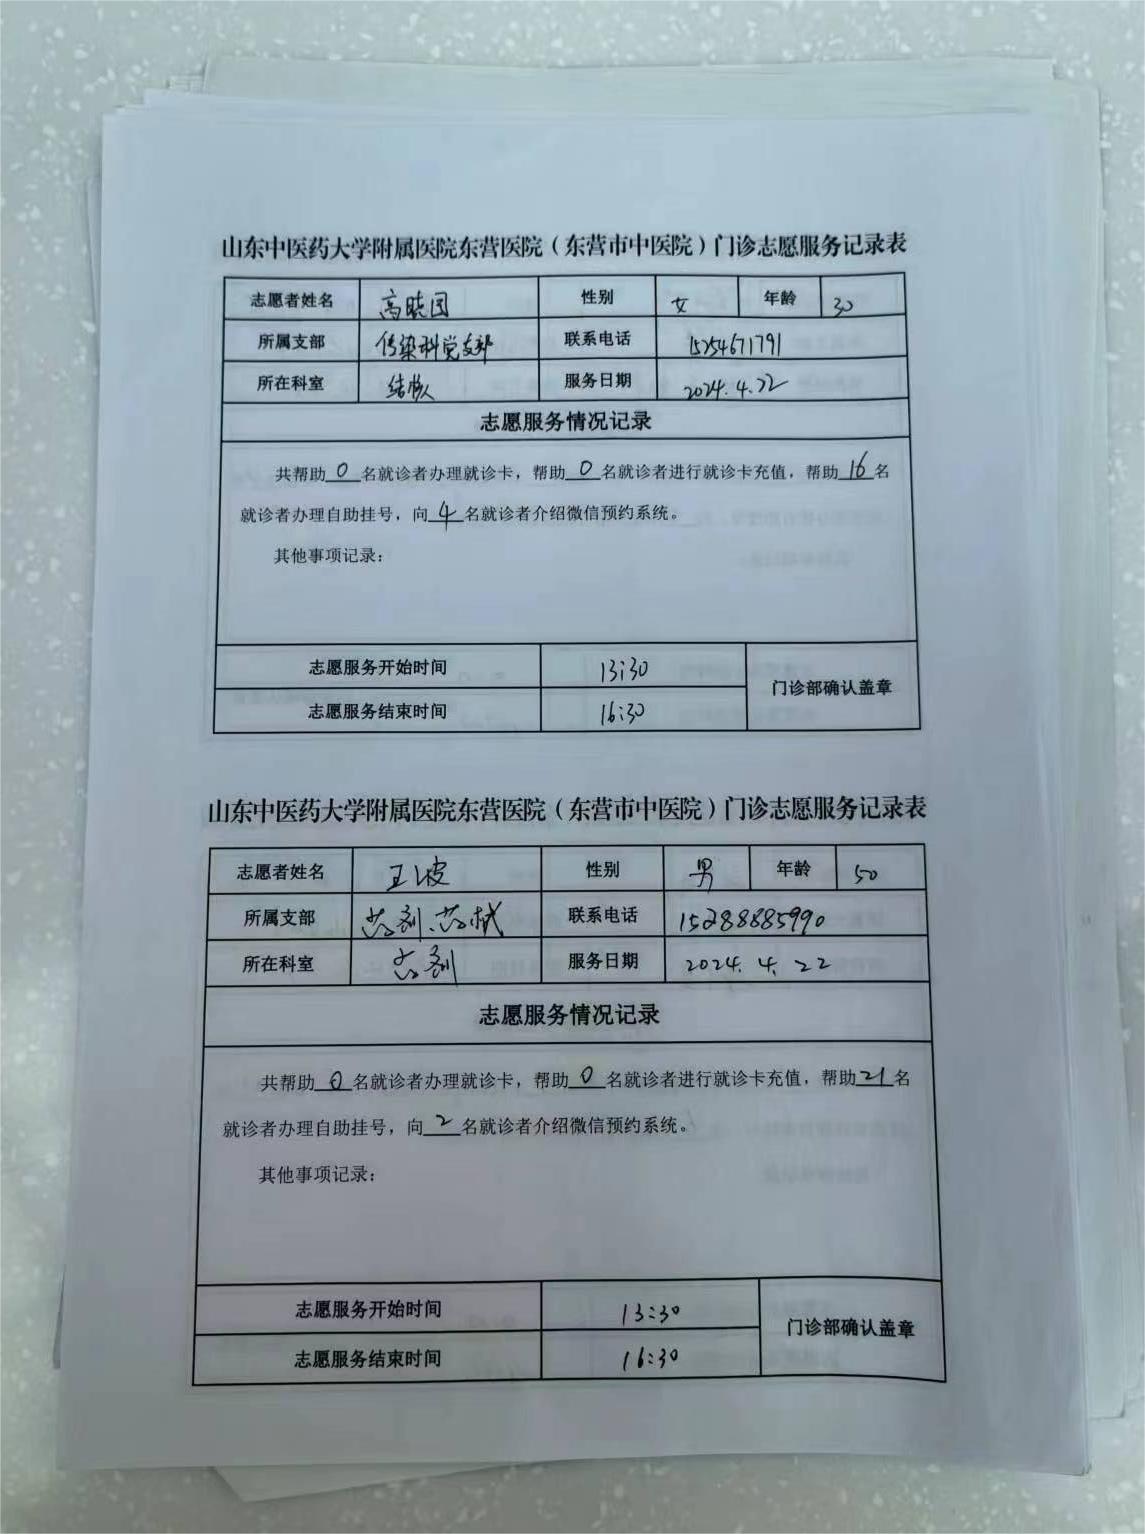 山东中医药大学附属医院东营医院（东营市中医院）门诊志愿服务记录表
志愿者姓名 高晓园 性别 女 年龄 30
所属支部 传染科党支部 联系电话 15254671791
所在科室 结核 服务日期 2024.4.22
志愿服务情况记录
共帮助0名就诊者办理就诊卡，帮助0名就诊者进行就诊卡充值，帮助16名
就诊者办理自助挂号，向4名就诊者介绍微信预约系统。
其他事项记录：
志愿服务开始时间 13:30
门诊部确认盖章
志愿服务结束时间 16:30
山东中医药大学附属医院东营医院（东营市中医院）门诊志愿服务记录表
志愿者姓名 王波 性别 男 年龄 50
所属支部 药剂、药械 联系电话 15288885990
所在科室 药剂 服务日期 2024.4.22
志愿服务情况记录
共帮助0名就诊者办理就诊卡，帮助0名就诊者进行就诊卡充值，帮助21名
就诊者办理自助挂号，向2名就诊者介绍微信预约系统。
其他事项记录：
志愿服务开始时间 13:30
门诊部确认盖章
志愿服务结束时间 16:30